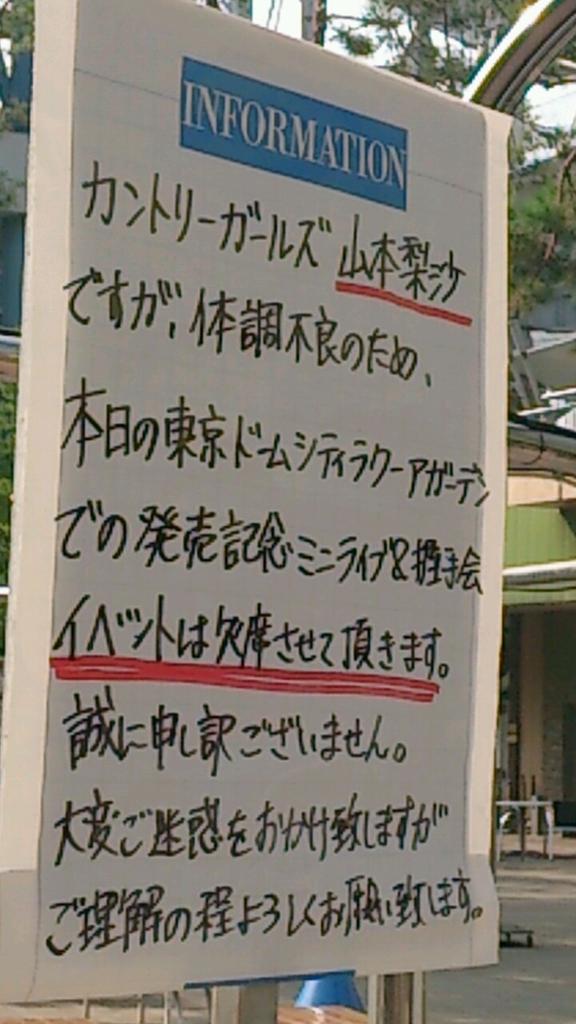 INFORMATION
カントリーガールズ 山本梨沙
ですが、体調不良のため、
本日の東京ドームシティラクーアガーデン
での発売記念ミニライブ&握手会
イベントは欠席させて頂きます。
誠に申し訳ございません。
大変ご迷惑をおかけ致しますが
ご理解の程よろしくお願い致します。